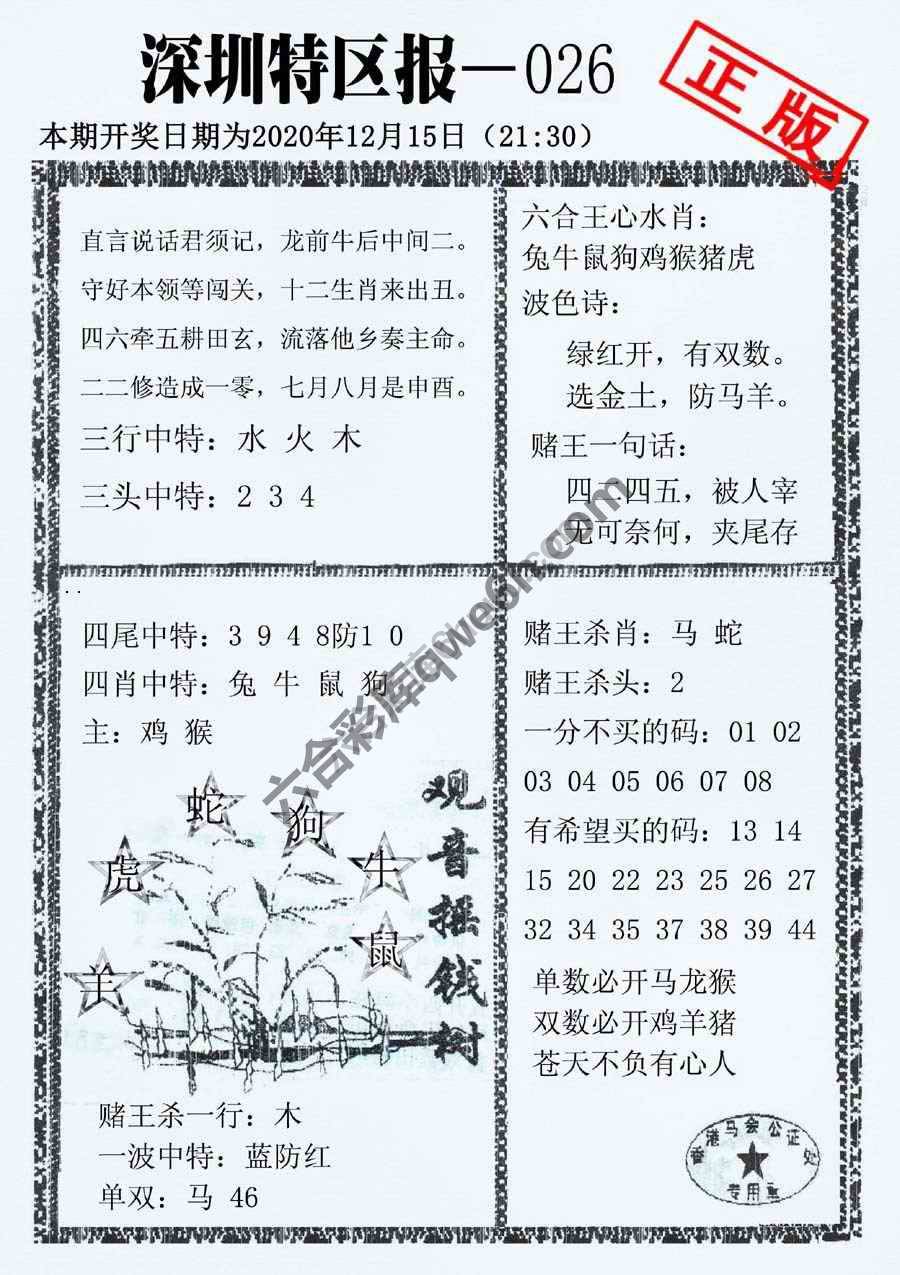 深圳特区报—026
正版
本期开奖日期为2020年12月15日（21:30）
直言说话君须记，龙前牛后中间二。
守好本领等闯关，十二生肖来出丑。
四六牵五耕田玄，流落他乡奏主命。
二二修造成一零，七月八月是申酉。
三行中特：水 火 木
三头中特：2 3 4
六合王心水肖：
兔牛鼠狗鸡猴猪虎
波色诗：
绿红开，有双数。
选金土，防马羊。
赌王一句话：
四二四五，被人宰
无可奈何，夹尾存
四尾中特：3 9 4 8防1 0
四肖中特：兔 牛 鼠 狗
主：鸡 猴
蛇
狗
虎
牛
鼠
羊
观音摇钱树
赌王杀一行：木
一波中特：蓝防红
单双：马 46
赌王杀肖：马 蛇
赌王杀头：2
一分不买的码：01 02
03 04 05 06 07 08
有希望买的码：13 14
15 20 22 23 25 26 27
32 34 35 37 38 39 44
单数必开马龙猴
双数必开鸡羊猪
苍天不负有心人
香港马会公证处
专用章
六合彩库qwe6h.com